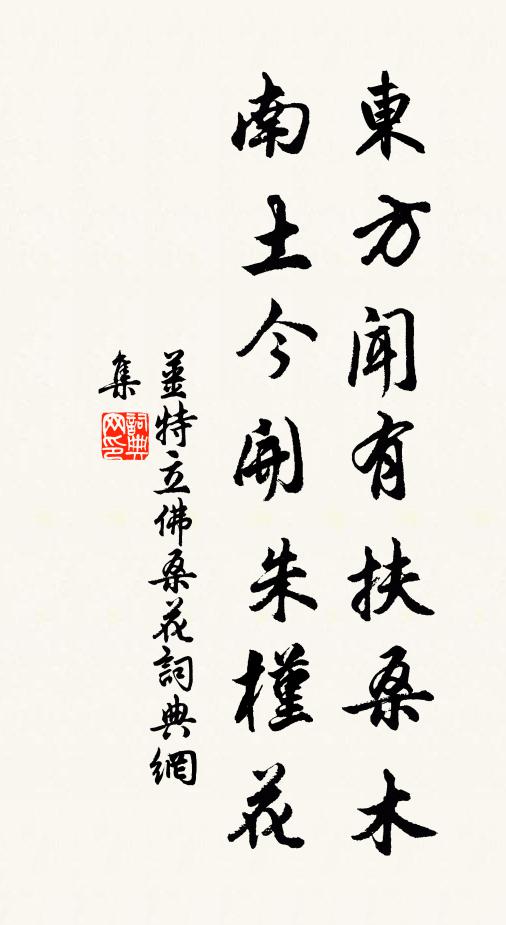 東方聞有扶桑木
南土今開朱槿花
姜特立佛桑花詞典網
集
詞典網印